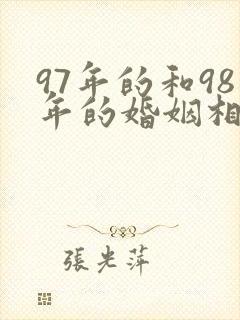 97年的和98
年的婚姻相
張光萍